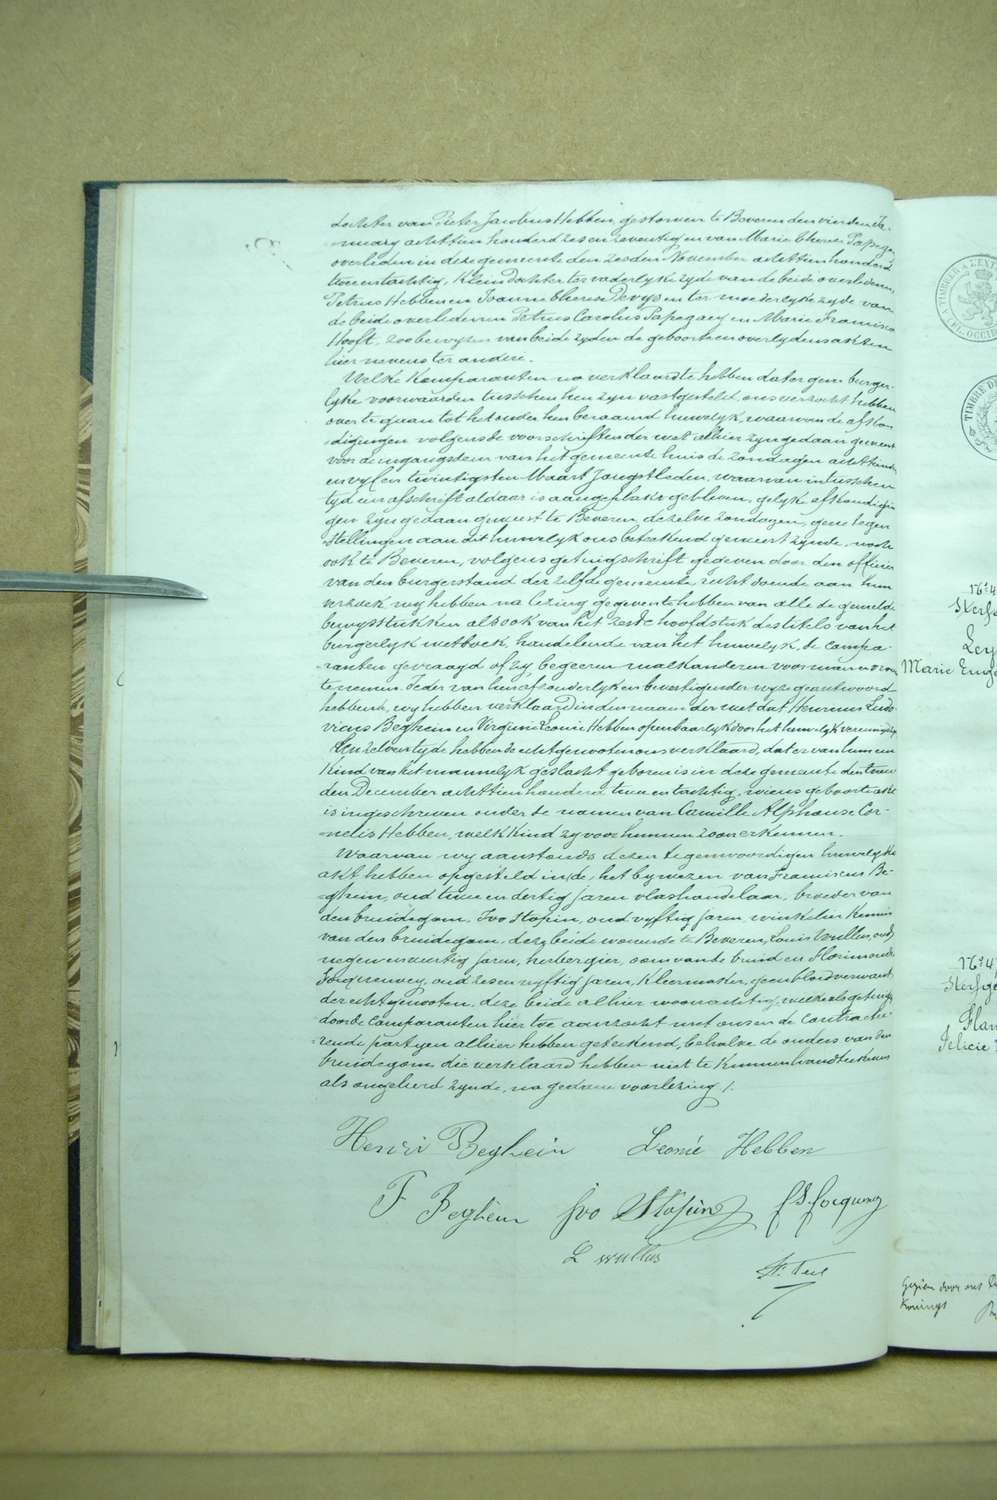 dochter van Pieter Jacobus Hebben, gestorven te Beveren den vierden Ja-
nuary achttien honderd zes en zeventig en van Marie Therese Papegaey
overleden in deze gemeente den zesden November achttien honderd
twee en tachtig, Kleindochter ter vaderlyke zyde van de beide overledenen
Petrus Hebben en Joanna Therese Devyse en ter moederlyke zyde van
de beide overledenen Petrus Carolus Papegaey en Marie Francisca
Hooft, zoo bewyzen van beide zyden de geboorte en overlydensakten
hier nevens ter andere.
Welke Komparanten na verklaard te hebben dat er geene burger-
lyke voorwaarden tusschen hen zyn vastgesteld, ons verzocht hebben
over te gaan tot het onder hen beraamd huwelyk, waarvan de afkon-
digingen volgens de voorschriften der wet alhier zyn gedaan geweest
voor de ingangsdeur van het gemeente huis de zondagen achttienden
en vyf en twintigsten Maart Jongstleden, waarvan intusschen
tyd een afschrift aldaar is aangeplakt gebleven, gelyke afkondigin-
gen zyn gedaan geweest te Beveren, dezelve zondagen, geene tegen
stellingen aan dit huwelyk ons beteekend geweest zynde, noch
ook te Beveren, volgens getuigschrift gegeven door den officier
van den burgerstand der zelfde gemeente, recht doende aan hun
verzoek, wy hebben na lezing gegeven te hebben van alle de gemelde
bewysstukken alsook van het zesde hoofdstuk des titels van het
burgerlyk wetboek, handelende van het huwelyk, de compa-
ranten gevraagd of zy begeeren malkanderen voor man en vrouw
te nemen. Ieder van hun afzonderlyk en bevestigender wyze geantwoord
hebbende, wy hebben verklaard in den naam der wet dat Henricus Ludo-
vicus Beghein en Virginie Leonie Hebben openbaarlyk door het huwelyk vereenigd zyn
Ten zelven tyde hebben de echtgenooten ons verklaard, dat er van hun een
Kind van het mannelyk geslacht geboren is in deze gemeente den twee
den December achttien honderd twee en tachtig, wiens geboorteakt
is ingeschreven onder de namen van Camille Alphonse Cor-
nelis Hebben, welk Kind zy voor hunnen zoon erkennen.
Waarvan wy aanstonds dezen tegenwoordigen huwelyks
akt hebben opgesteld in het bywezen van Franciscus Be-
ghein, oud twee en dertig Jaren, vlashandelaar, broeder van
den bruidegom, Ivo Stopin, oud vyftig Jaren, winkelier Kennis
van den bruidegom, deze beide wonende te Beveren, Louis Wullus, oud
negen en veertig Jaren, herbergier, oom van de bruid en Florimond
Jocqueney, oud zes en vyftig Jaren, Kleermaker, geen bloedverwant
der echtgenooten, deze beide alhier woonachtig, welke als getuigen
door de Comparanten hier toe aanzocht met ons en de contractee-
rende partyen alhier hebben geteekend, behalve de ouders van den
bruidegom die verklaard hebben niet te Kunnen handteekenen
als ongeleerd zynde, na gedane voorlezing ./.
Henri Beghein Leonie Hebben
F Beghein Ivo Stopin
L wullus
N° 4
Marie Euge
N° 4
Felicie
TIMBRE A L'EXT
FL. OCCID
TIMBRE DE
Gezien door ons
Konings